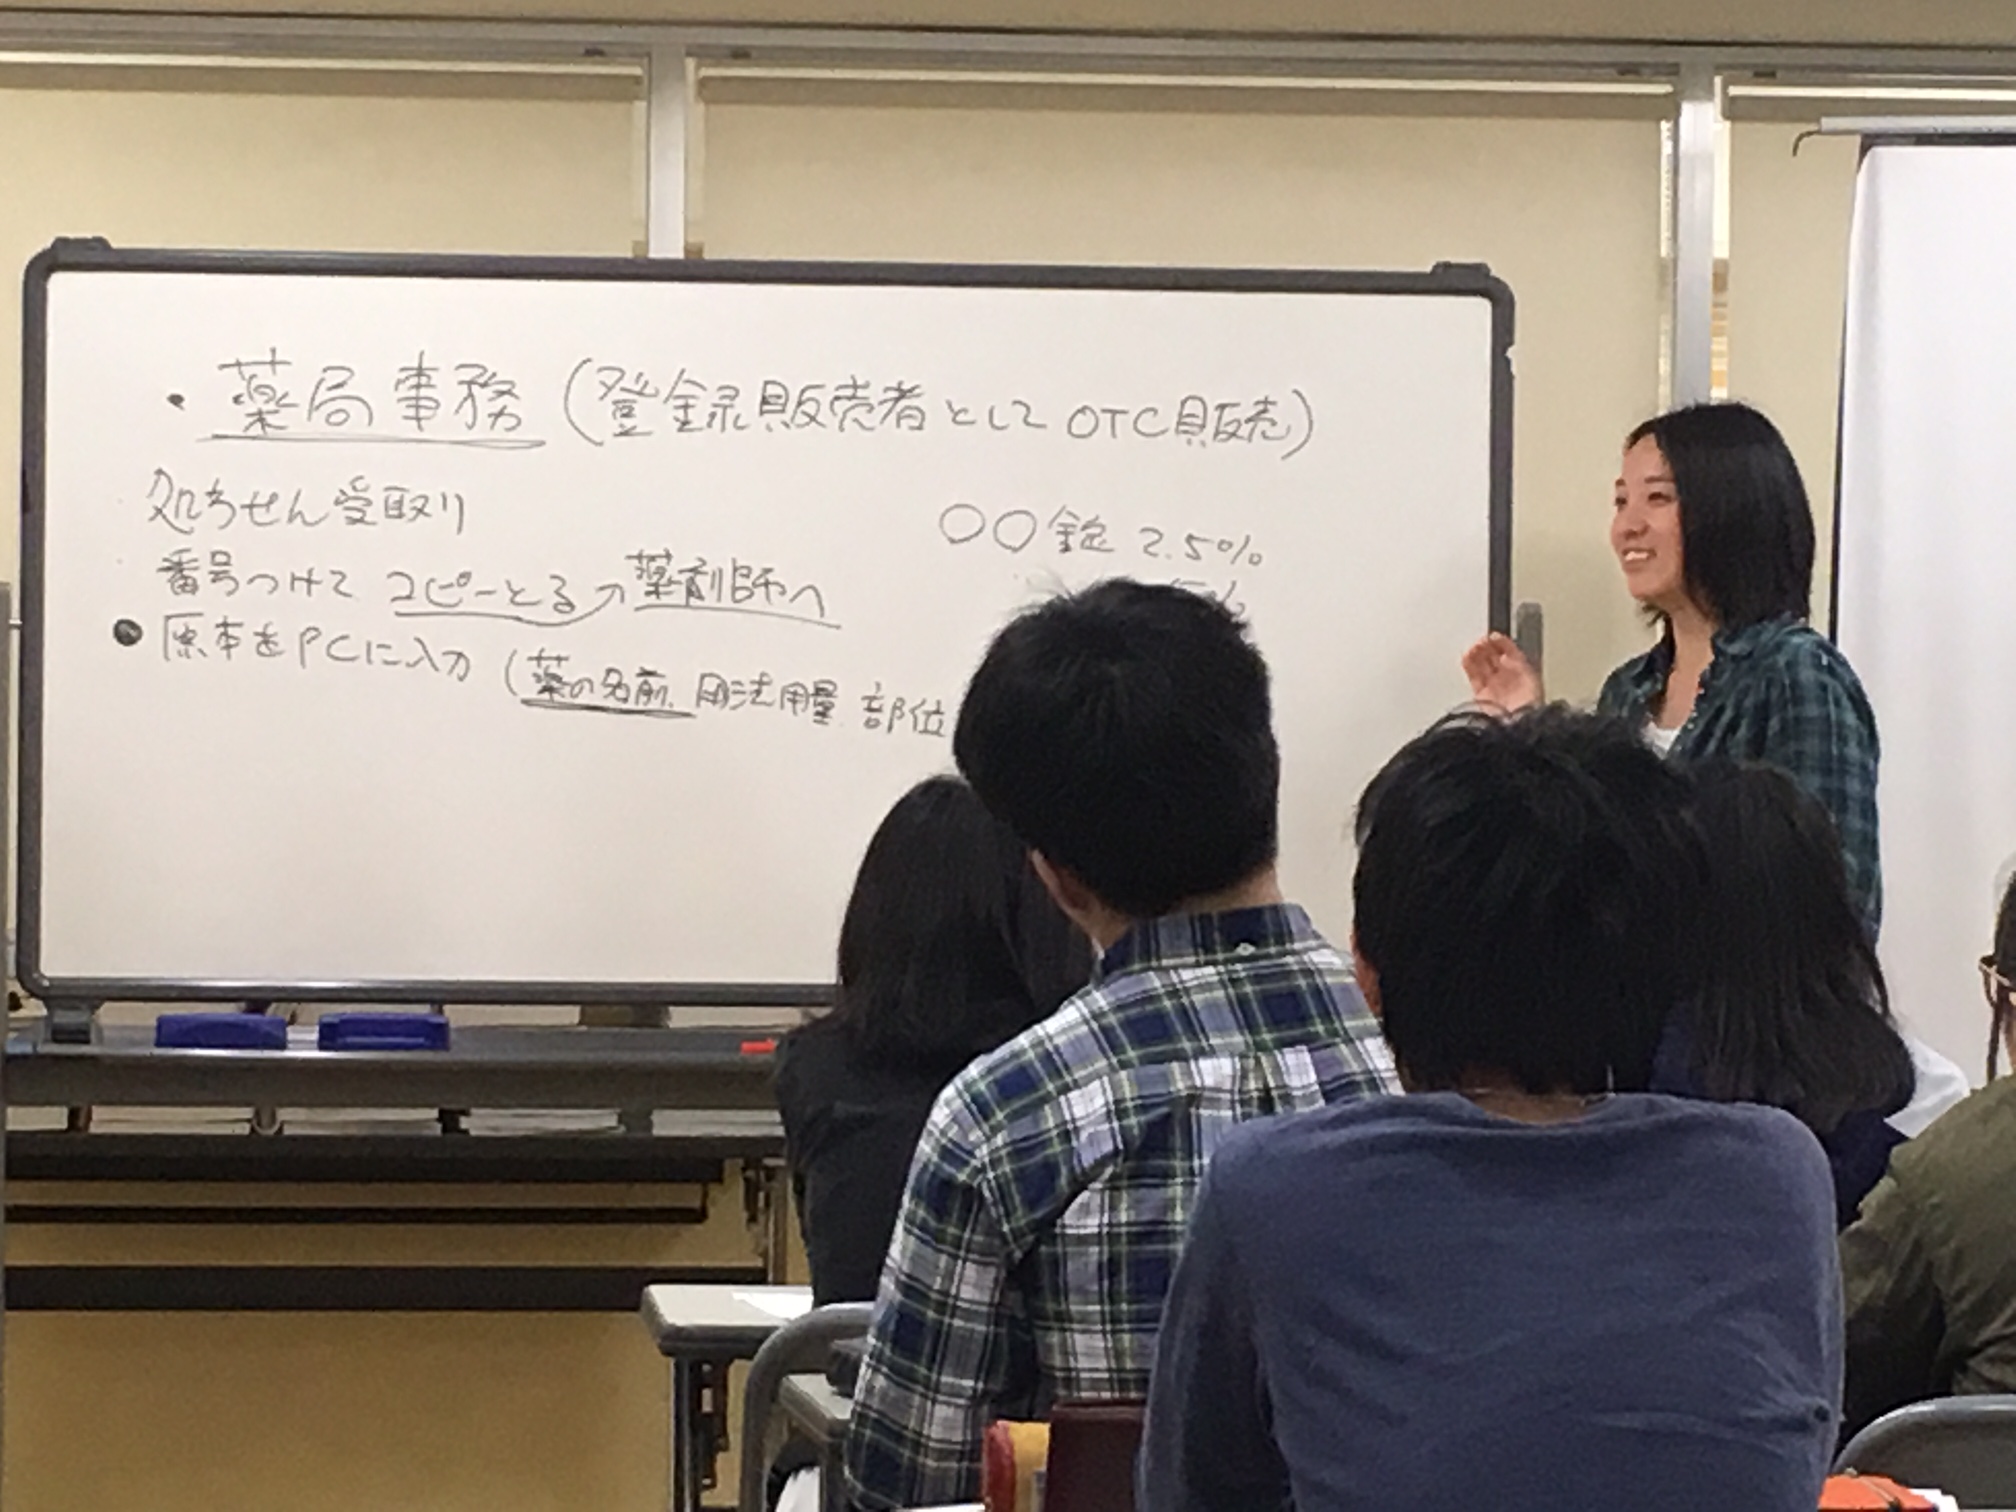 ・薬局事務（登録販売者として OTC販売）
処方せん受取り
番号つけて コピーとる→薬剤師へ
●原本をPCに入力（薬の名前、用法用量、部位
〇〇錠 2.5%
5%